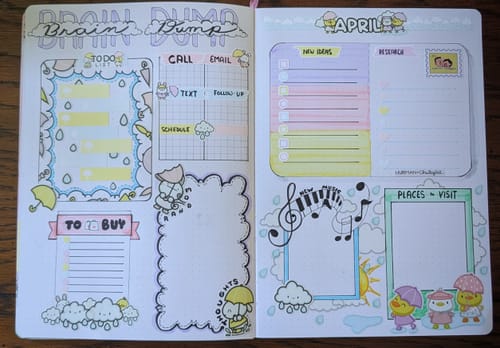 BRAIN DUMP
Brain Dump
TO DO
LIST
CALL
EMAIL
TEXT
FOLLOW-UP
SCHEDULE
TO BUY
RANDOM
THOUGHTS
APRIL
NEW IDEAS
RESEARCH
NEW MUSIC
PLACES to VISIT